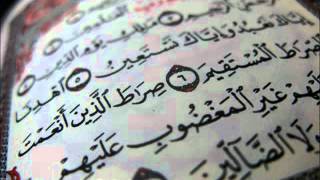 الرحمن الرحيم ۝ مالك يوم الدين ۝
إياك نعبد وإياك نستعين ۝ اهدنا
الصراط المستقيم ۝ صراط الذين أنعمت
عليهم غير المغضوب عليهم
ولا الضالين